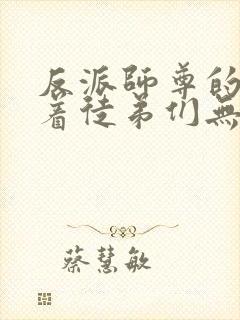 反派师尊的
着徒弟们無
蔡慧敏